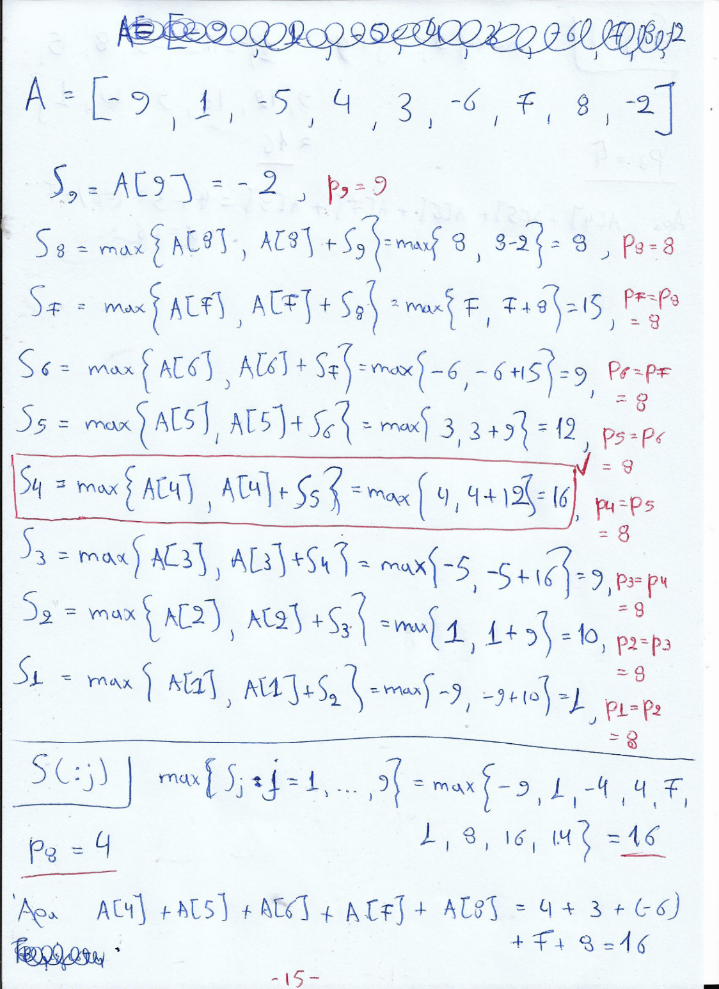 A = [-9, 1, -5, 4, 3, -6, 7, 8, -2]
S9 = A[9] = -2, p9 = 9
S8 = max{A[8], A[8] + S9} = max{8, 8-2} = 8, p8 = 8
S7 = max{A[7], A[7] + S8} = max{7, 7+8} = 15, p7=p8
= 8
S6 = max{A[6], A[6] + S7} = max{-6, -6+15} = 9, p6=p7
= 8
S5 = max{A[5], A[5] + S6} = max{3, 3+9} = 12, p5=p6
= 8
S4 = max{A[4], A[4] + S5} = max{4, 4+12} = 16, p4=p5
= 8
S3 = max{A[3], A[3] + S4} = max{-5, -5+16} = 9, p3=p4
= 8
S2 = max{A[2], A[2] + S3} = max{1, 1+9} = 10, p2=p3
= 8
S1 = max{A[1], A[1] + S2} = max{-9, -9+10} = 1, p1=p2
= 8
S(:j) max{Sj : j = 1, ..., 9} = max{-9, 1, -4, 4, 7,
1, 8, 16, 14} = 16
p8 = 4
Άρα A[4] + A[5] + A[6] + A[7] + A[8] = 4 + 3 + (-6)
+ 7 + 8 = 16
-15-